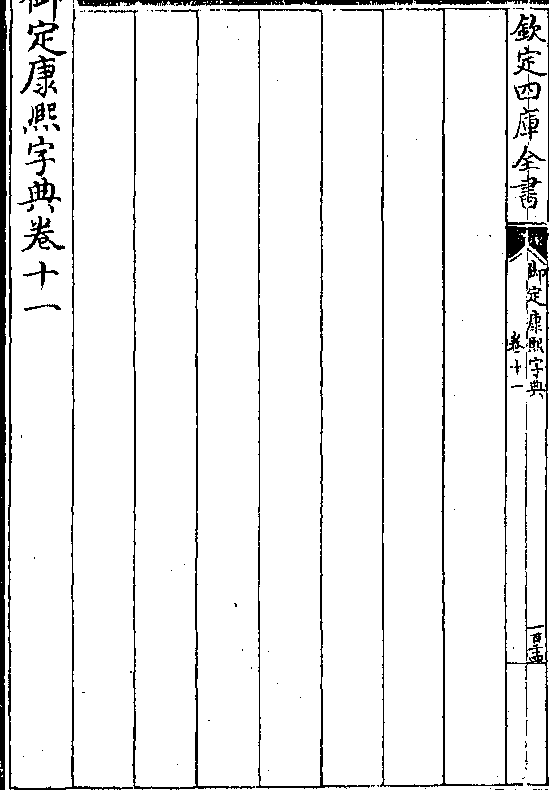 欽定四庫全書
御定康熙字典
卷十一
御定康熙字典卷十一